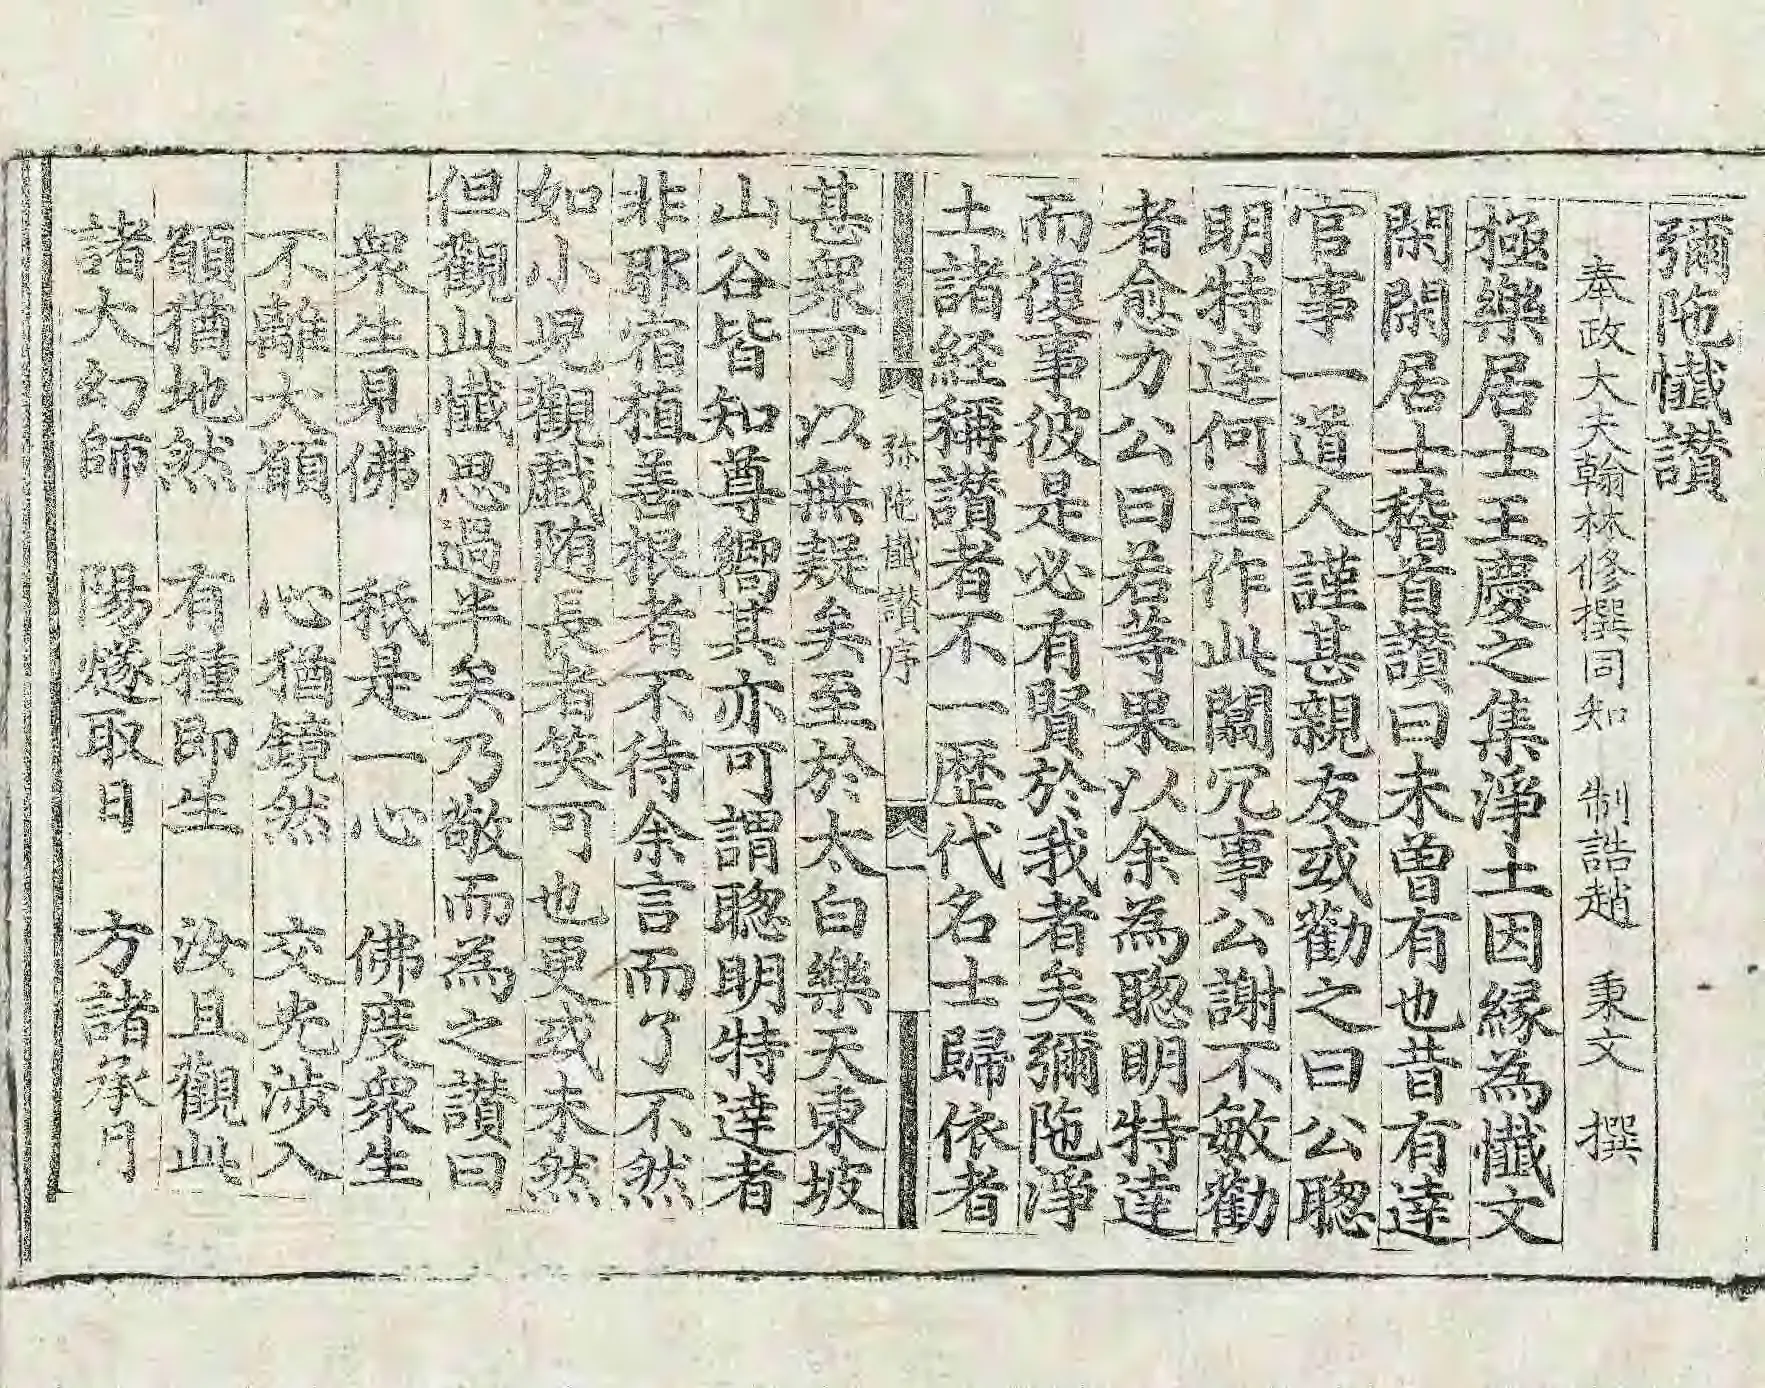 彌陁懺讃
奉政大夫翰林修撰同知 制誥趙 秉文 撰
極樂居士王慶之集淨土因縁為懺文
閑閑居士稽首讃曰未曾有也昔有達
官事一道人謹甚親友或勸之曰公聦
明特達何至作此闒冗事公謝不敏勸
者愈力公曰若等果以余為聦明特達
而復事彼是必有賢於我者矣彌陁淨
土諸経稱讃者不一歷代名士歸依者
弥陁懺讃序
一
甚衆可以無疑矣至於太白樂天東坡
山谷皆知尊嚮其亦可謂聦明特達者
非耶宿植善根者不待余言而了不然
如小児觀戯随長者笑可也更或未然
但觀此懺思過半矣乃敬而為之讃曰
衆生見佛 秖是一心 佛度衆生
不離大願 心猶鏡然 交光涉入
願猶地然 有種即生 汝且觀此
諸大幻師 陽燧取日 方諸承月